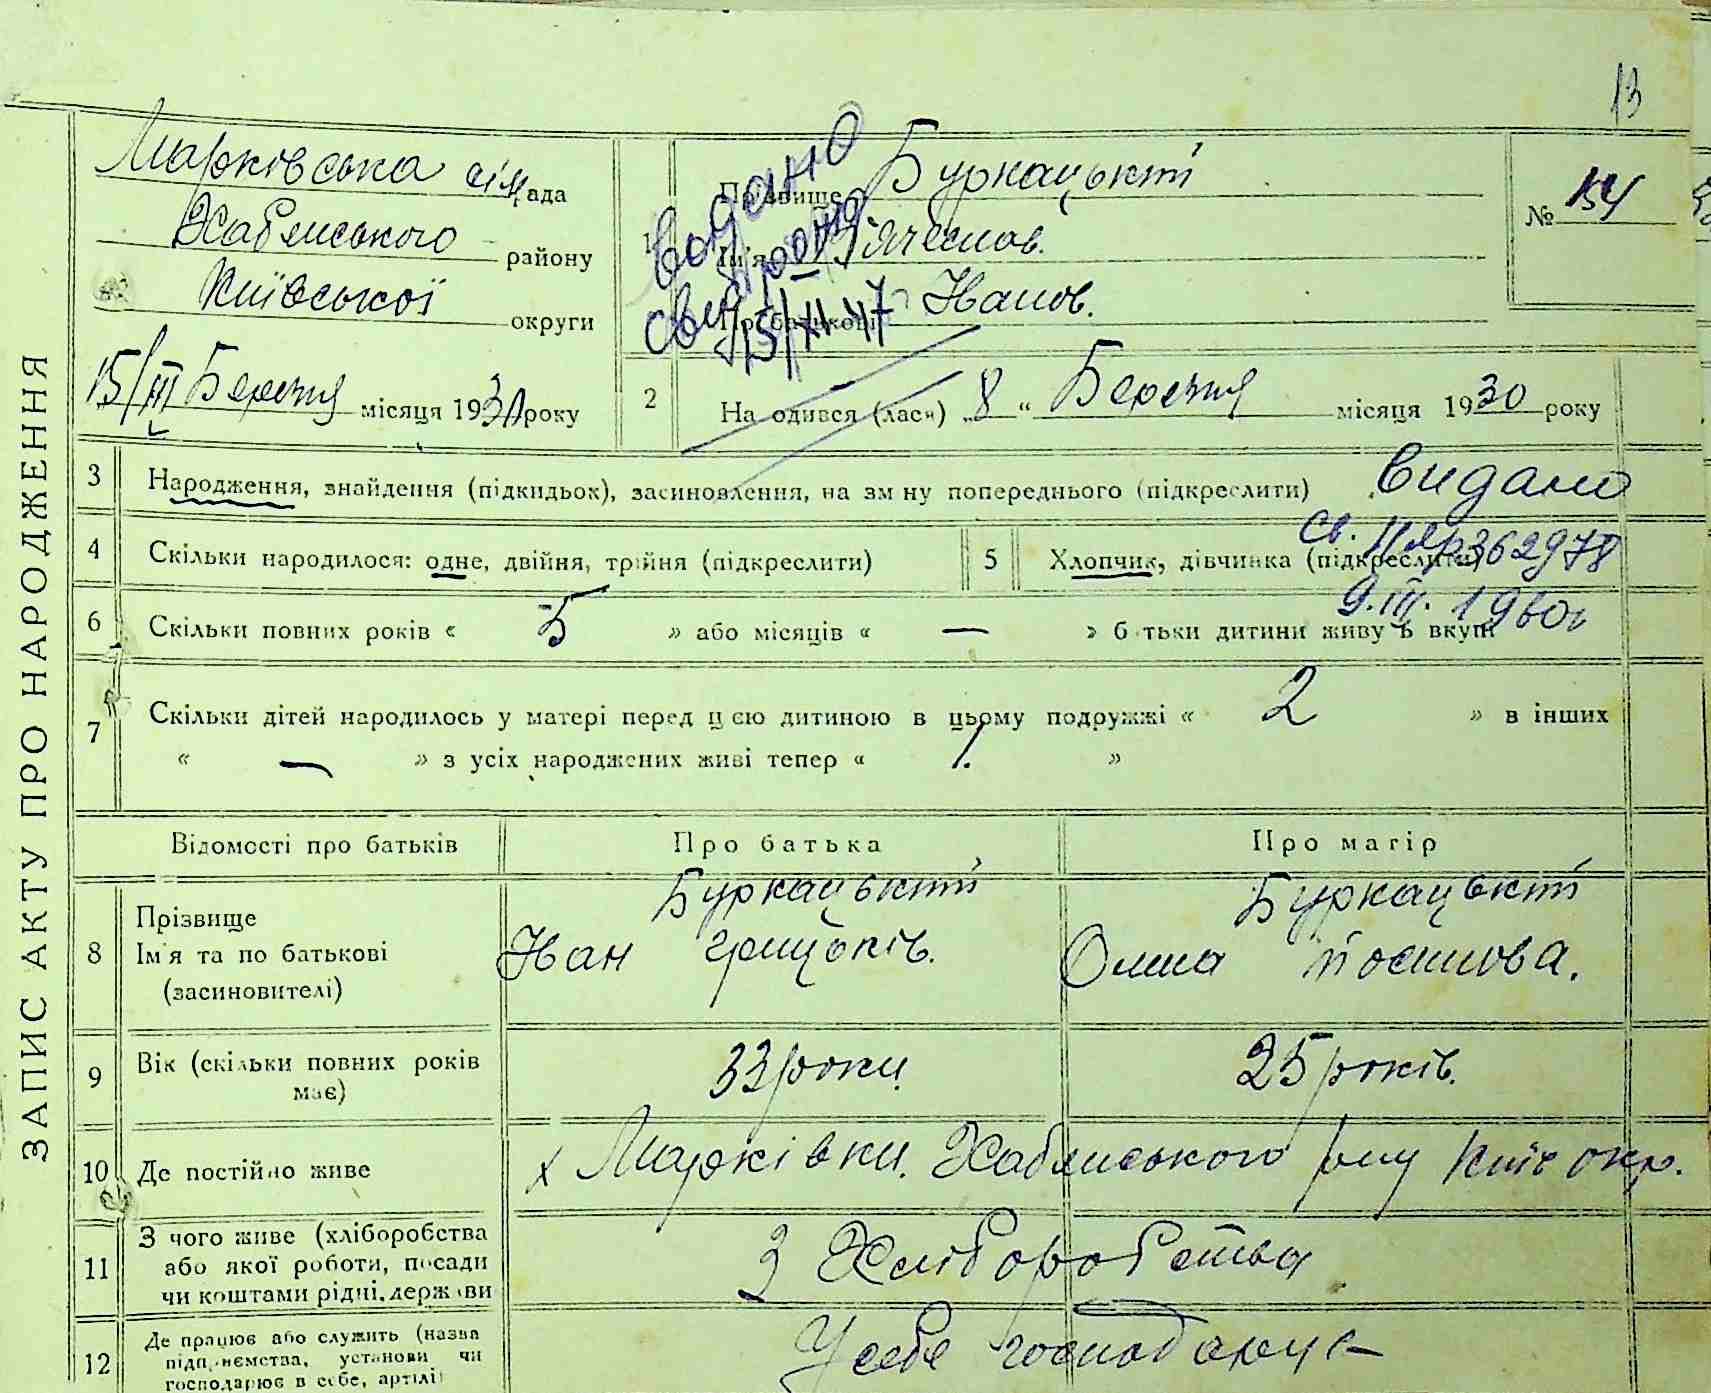 13
Марківська сіль рада
Хабенського району
Київської округи
15/III Березня місяця 1930 року
1 Прізвище Буркацький
Ім'я Вячеслав.
По батькові Іванов.
№ 154
видано
15/XII 47
2 Народився (лася) „8“ Березня місяця 1930 року
ЗАПИС АКТУ ПРО НАРОДЖЕННЯ
3 Народження, знайдення (підкидьок), засиновлення, на зміну попереднього (підкреслити)
видано
св. 362978
9.III. 1960г
4 Скільки народилося: одне, двійня, трійня (підкреслити)
5 Хлопчик, дівчинка (підкреслити)
6 Скільки повних років « 5 » або місяців « — » батьки дитини живуть вкупі
7 Скільки дітей народилось у матері перед цією дитиною в цьому подружжі « 2 » в інших
« — » з усіх народжених живі тепер « 1. »
Відомості про батьків Про батька Про матір
8 Прізвище Буркацький Буркацький
Ім'я та по батькові Іван Грицьків. Олена
(засиновителі)
9 Вік (скільки повних років має) 33 роки 25 років.
10 Де постійно живе х Марківки. Хабенського р-ну Київ окр.
11 З чого живе (хліборобства З Хліборобства
або якої роботи, посади
чи коштами рідні, держави
12 Де працює або служить (назва У себе господарує
підприємства, установи чи
господарює в себе, артілі